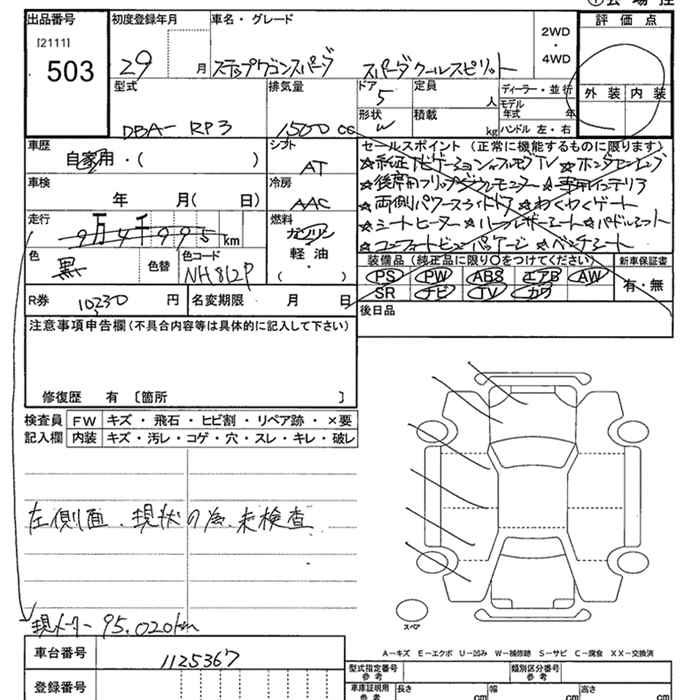 ① 会場控
出品番号
[2111]
503
初度登録年月
29 月
車名・グレード
ステップワゴンスパーダ スパーダクールスピリット
2WD
・
4WD
評価点
外装 内装
型式
DBA- RP3
排気量
1500 cc
ドア
5
形状
W
定員
人
積載
kg
ディーラー・並行
モデル年式 年
ハンドル 左・右
車歴
自家用・( )
シフト
AT
車検
年 月( 日)
冷房
AAC
走行
9万4千995km
燃料
ガソリン
軽油・
( )
色
黒
色替
色コード
NH812P
R券 10230 円
名変期限 月 日
セールスポイント(正常に機能するものに限ります)
☆純正ナビゲーション ☆フルセグTV ☆ホンダセンシング
☆後席用フリップダウンモニター ☆専用インテリア
☆両側パワースライドドア ☆わくわくゲート
☆シートヒーター ☆ハーフレザーシート ☆パドルシフト
☆コンフォートビューパッケージ ☆ベンチシート
装備品(純正品に限り○をつけてください)
PS PW ABS エアB AW
SR ナビ TV カワ
新車保証書
有・無
後日品
注意事項申告欄(不具合内容等は具体的に記入して下さい)
修復歴 有 〔箇所 〕
検査員記入欄
FW キズ・飛石・ヒビ割・リペア跡・×要
内装 キズ・汚レ・コゲ・穴・スレ・キレ・破レ
左側面、現状の為、未検査
現メーター 95,020km
スペア
A−キズ E−エクボ U−凹み W−補修跡 S−サビ C−腐食 XX−交換済
車台番号
1125367
登録番号
型式指定番号
参考
類別区分番号
参考
車庫証明用
参考
長さ cm
幅 cm
高さ cm